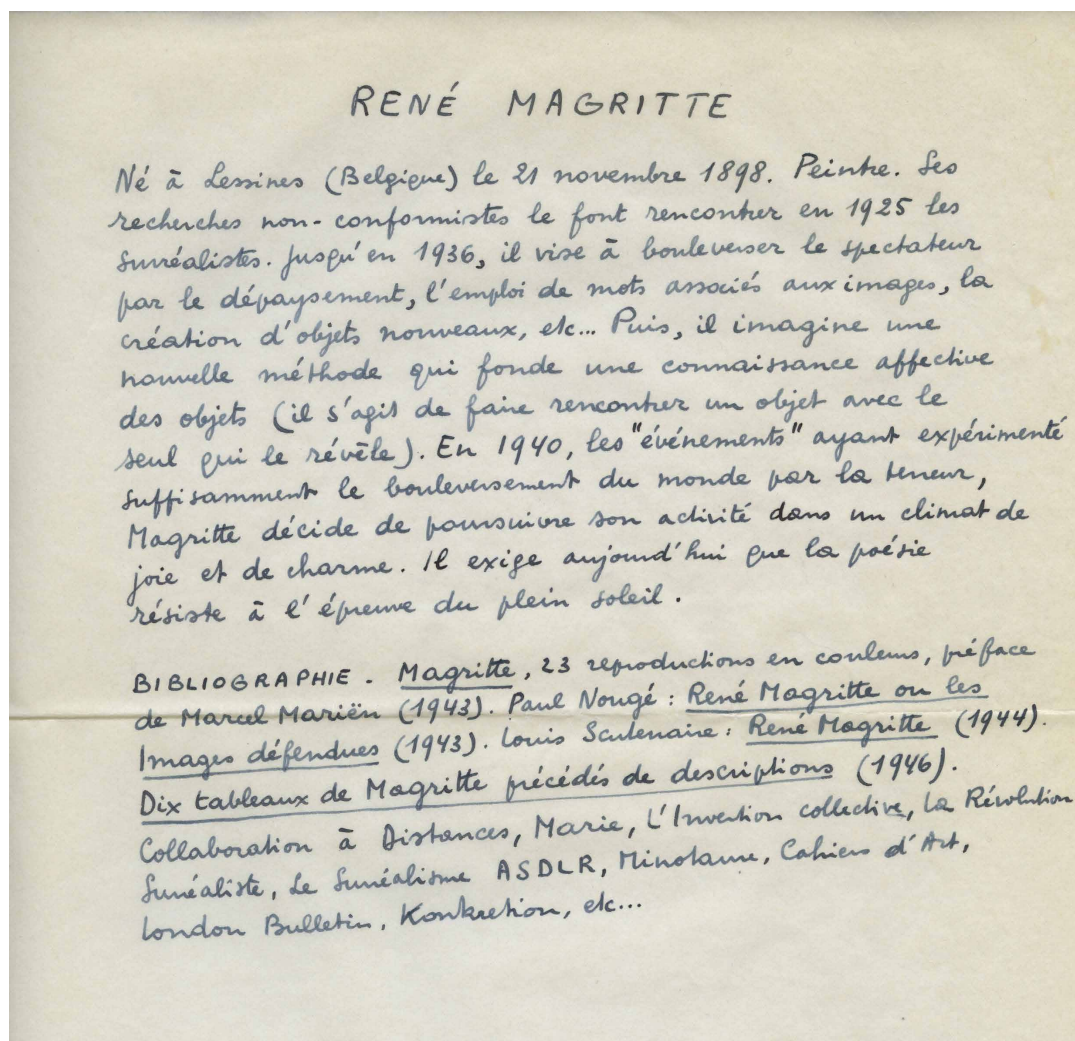 RENÉ MAGRITTE
Né à Lessines (Belgique) le 21 novembre 1898. Peintre. Ses
recherches non-conformistes le font rencontrer en 1925 les
Surréalistes. Jusqu'en 1936, il vise à bouleverser le spectateur
par le dépaysement, l'emploi de mots associés aux images, la
création d'objets nouveaux, etc... Puis, il imagine une
nouvelle méthode qui fonde une connaissance affective
des objets (il s'agit de faire rencontrer un objet avec le
seul qui le révèle). En 1940, les "événements" ayant expérimenté
suffisamment le bouleversement du monde par la terreur,
Magritte décide de poursuivre son activité dans un climat de
joie et de charme. Il exige aujourd'hui que la poésie
résiste à l'épreuve du plein soleil.
BIBLIOGRAPHIE. Magritte, 23 reproductions en couleurs, préface
de Marcel Mariën (1943). Paul Nougé : René Magritte ou les
Images défendues (1943). Louis Scutenaire : René Magritte (1944).
Dix tableaux de Magritte précédés de descriptions (1946).
Collaboration à Distances, Marie, L'Invention collective, La Révolution
Surréaliste, Le Surréalisme ASDLR, Minotaure, Cahiers d'Art,
London Bulletin, Konkretion, etc...